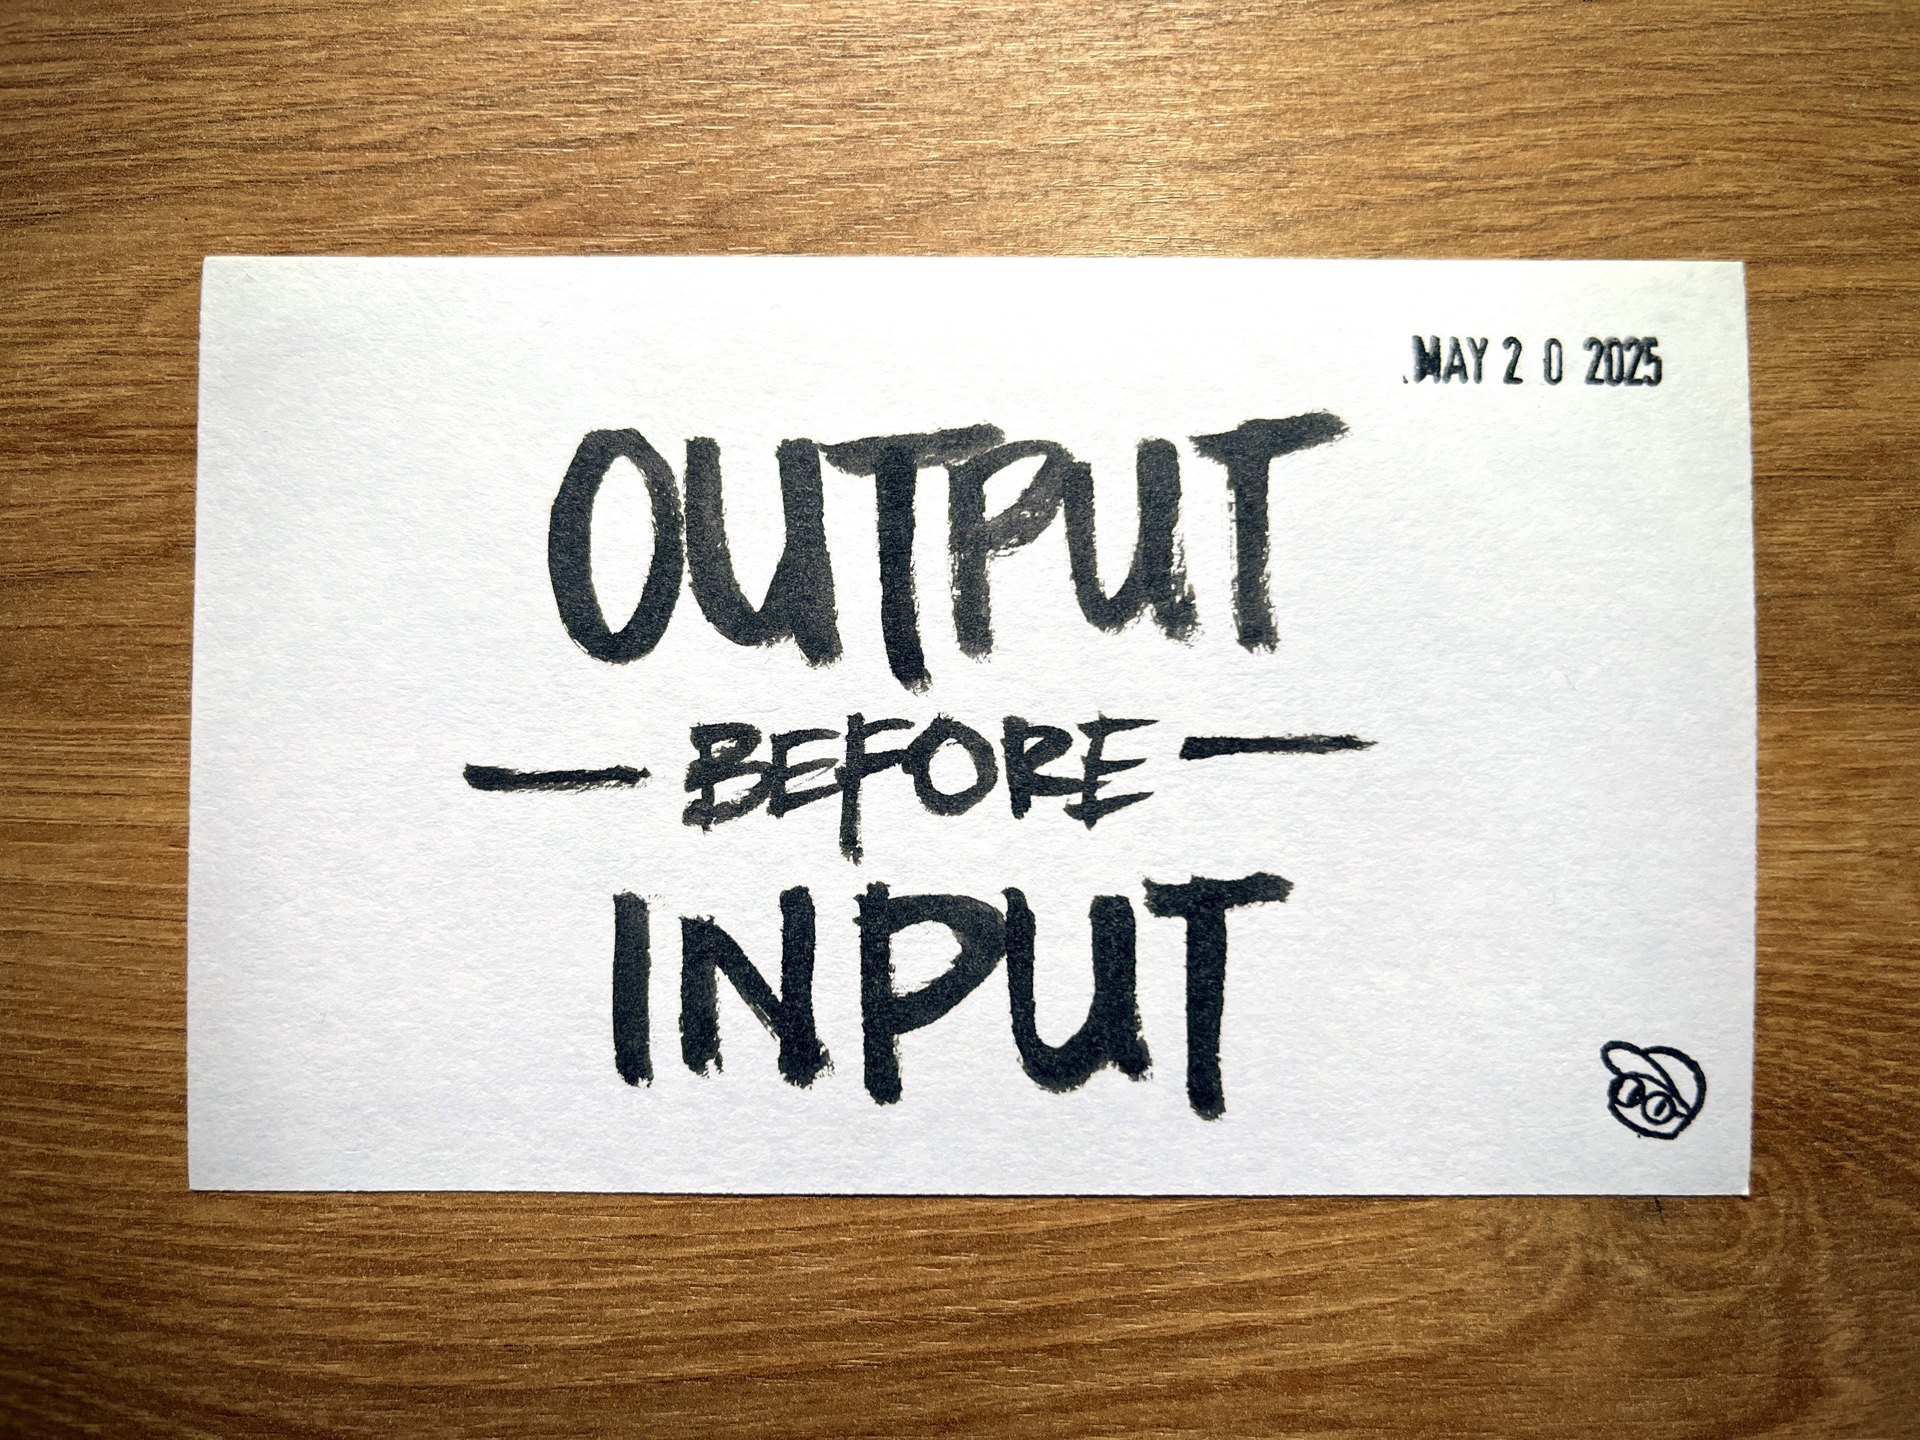 MAY 20 2025
OUTPUT
— BEFORE —
INPUT